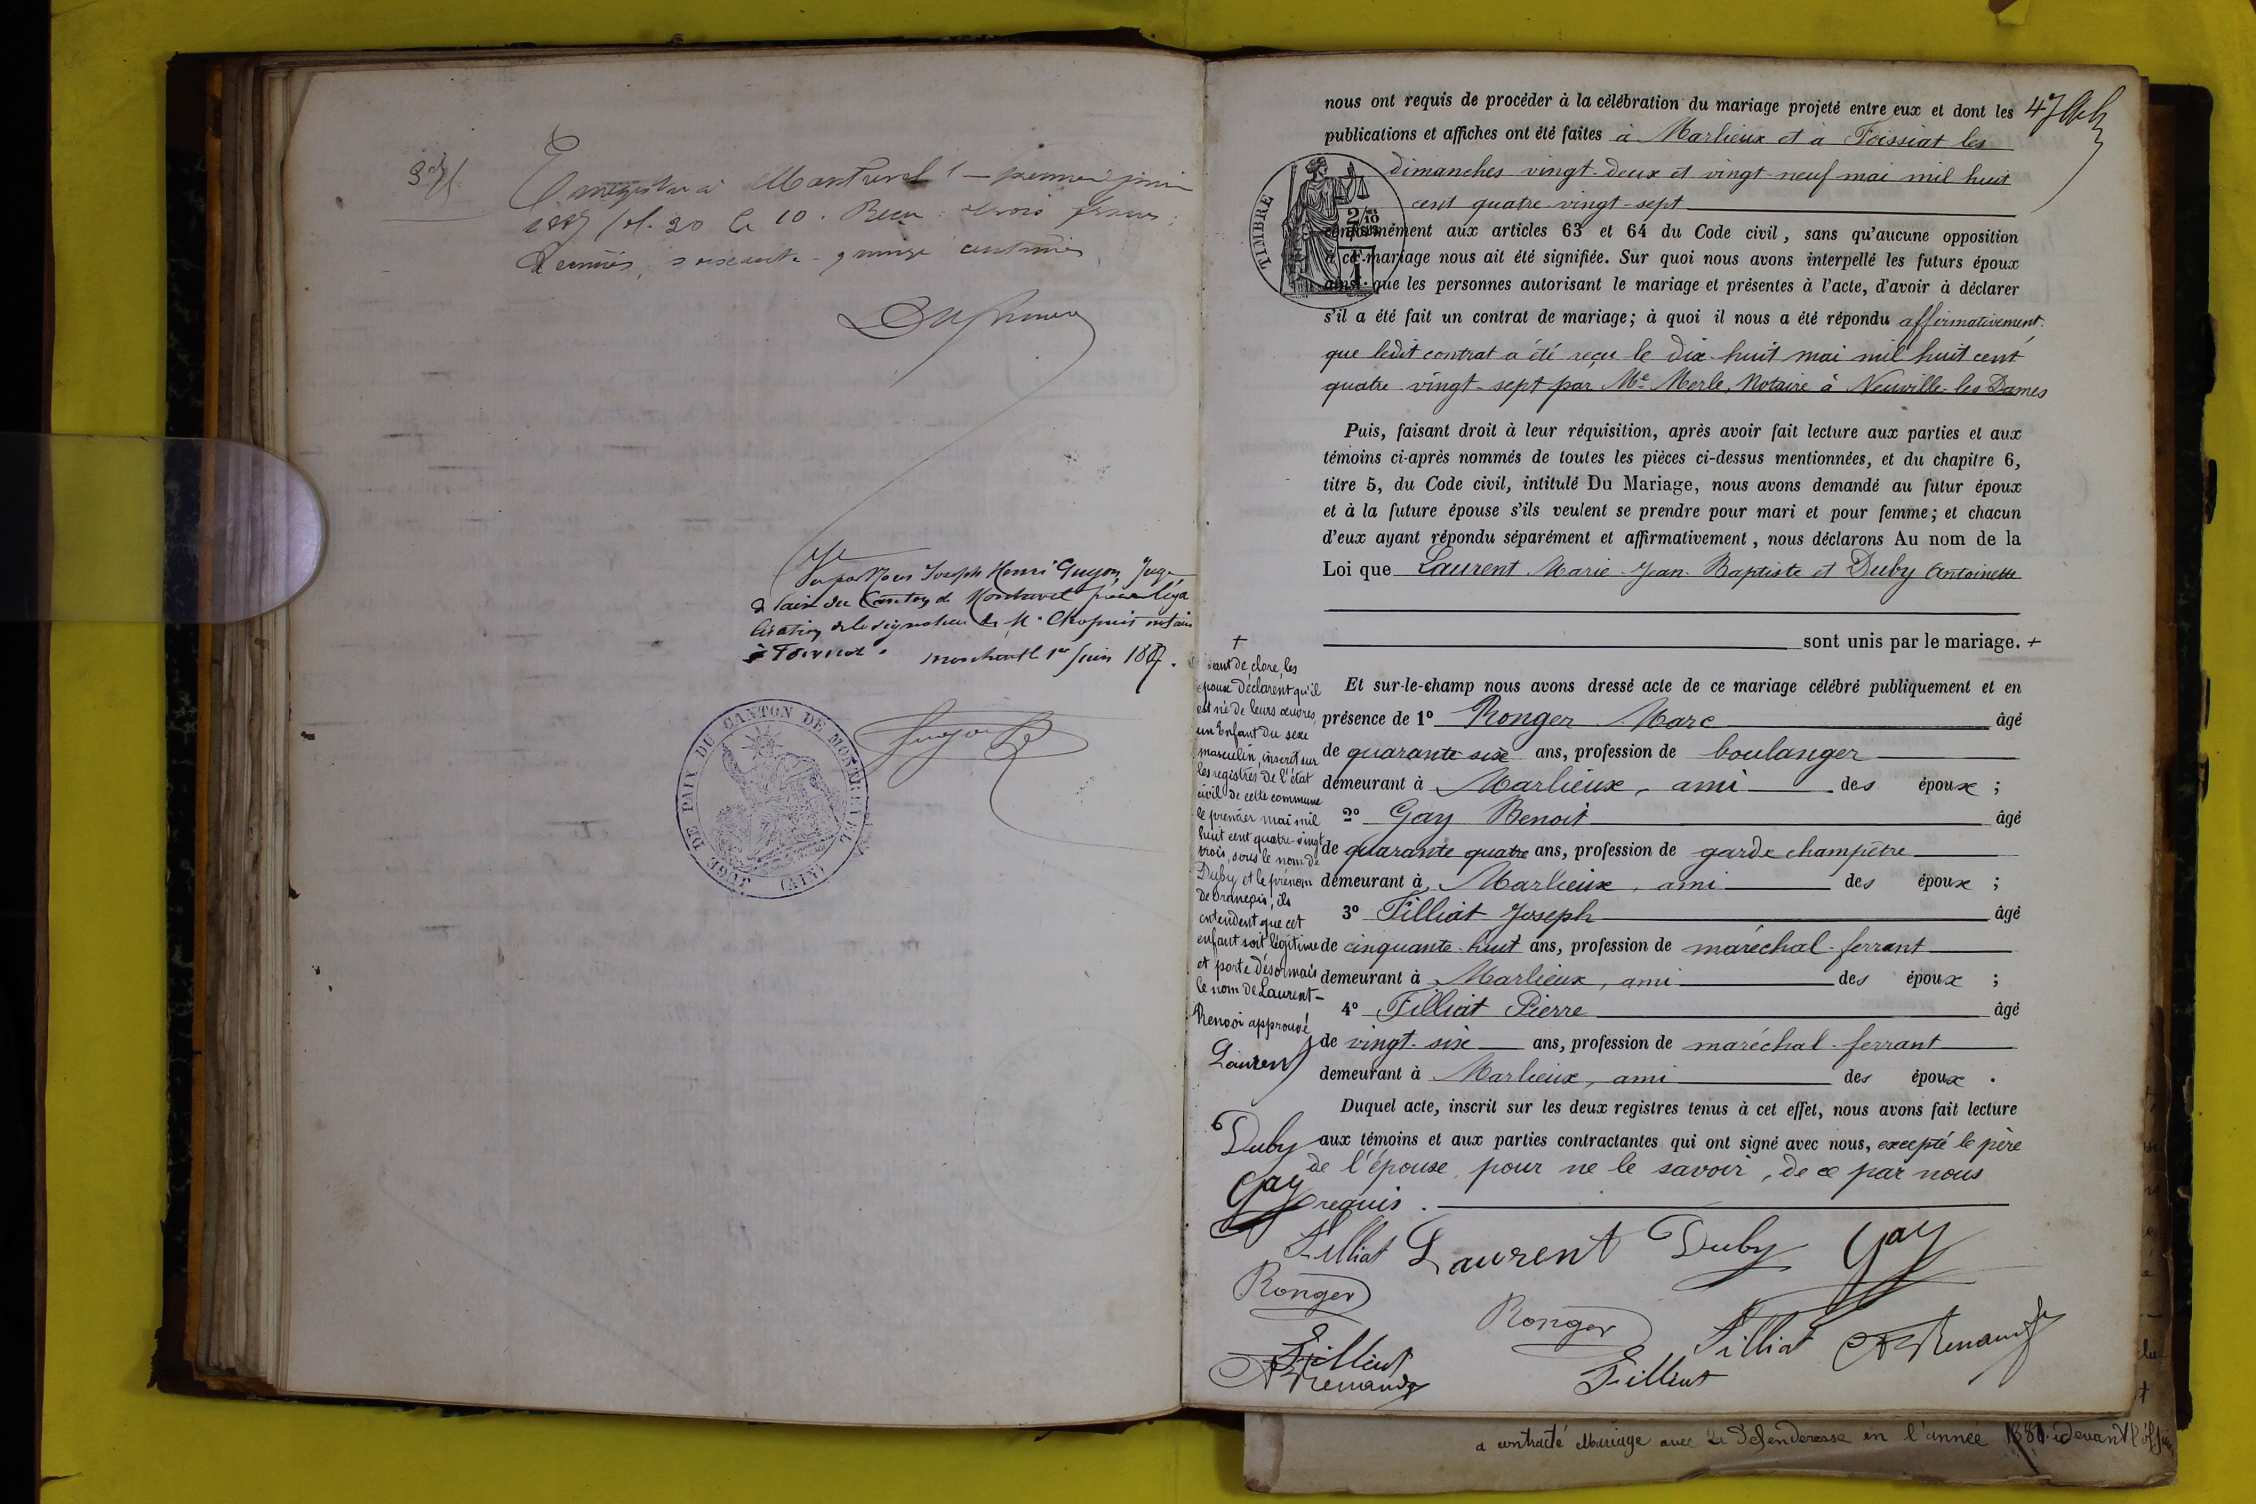 Enregistré à Montrevel le premier juin
1887 fol. 20 c. 10. Reçu trois francs,
Décimes, soixante-quinze centimes
Vu par Nous Joseph Henri Guyon, Juge
de Paix du Canton de Montrevel pour léga
lisation de la signature de Me Chapuis notaire
à Foissiat. Montrevel 1er Juin 1887.
JUGE DE PAIX DU CANTON DE MONTREVEL
(AIN)
nous ont requis de procéder à la célébration du mariage projeté entre eux et dont les
publications et affiches ont été faites à Marlieux et à Foissiat les
dimanches vingt-deux et vingt-neuf mai mil huit
cent quatre-vingt-sept
TIMBRE
2/10
conformément aux articles 63 et 64 du Code civil, sans qu'aucune opposition
à ce mariage nous ait été signifiée. Sur quoi nous avons interpellé les futurs époux
ainsi que les personnes autorisant le mariage et présentes à l'acte, d'avoir à déclarer
s'il a été fait un contrat de mariage; à quoi il nous a été répondu affirmativement
que ledit contrat a été reçu le dix-huit mai mil huit cent
quatre-vingt-sept par Me Merle, Notaire à Neuville-les-Dames
Puis, faisant droit à leur réquisition, après avoir fait lecture aux parties et aux
témoins ci-après nommés de toutes les pièces ci-dessus mentionnées, et du chapitre 6,
titre 5, du Code civil, intitulé Du Mariage, nous avons demandé au futur époux
et à la future épouse s'ils veulent se prendre pour mari et pour femme; et chacun
d'eux ayant répondu séparément et affirmativement, nous déclarons Au nom de la
Loi que Laurent Marie-Jean-Baptiste et Duby Antoinette
sont unis par le mariage. +
+
avant de clore, les
époux déclarent qu'il
est né de leurs œuvres,
un Enfant du sexe
masculin, inscrit sur
les registres de l'état
civil de cette commune
le premier mai mil
huit cent quatre-vingt
trois, sous le nom de
Duby et le prénom
de François, ils
entendent que cet
enfant soit légitime
et porte désormais
le nom de Laurent-
Renvoi approuvé
Laurent
Duby
Gay
Filliat
Ronger
Fillieut
Et sur-le-champ nous avons dressé acte de ce mariage célébré publiquement et en
présence de 1° Ronger Marc âgé
de quarante six ans, profession de boulanger
demeurant à Marlieux, ami des époux ;
2° Gay Benoit âgé
de quarante quatre ans, profession de garde champêtre
demeurant à Marlieux, ami des époux ;
3° Filliat Joseph âgé
de cinquante-huit ans, profession de maréchal-ferrant
demeurant à Marlieux, ami des époux ;
4° Filliat Pierre âgé
de vingt-six ans, profession de maréchal-ferrant
demeurant à Marlieux, ami des époux .
Duquel acte, inscrit sur les deux registres tenus à cet effet, nous avons fait lecture
aux témoins et aux parties contractantes qui ont signé avec nous, excepté le père
de l'épouse, pour ne le savoir, de ce par nous
requis.
Laurent Duby Gay
Ronger Filliat
a contracté Mariage avec la Défenderesse en l'année